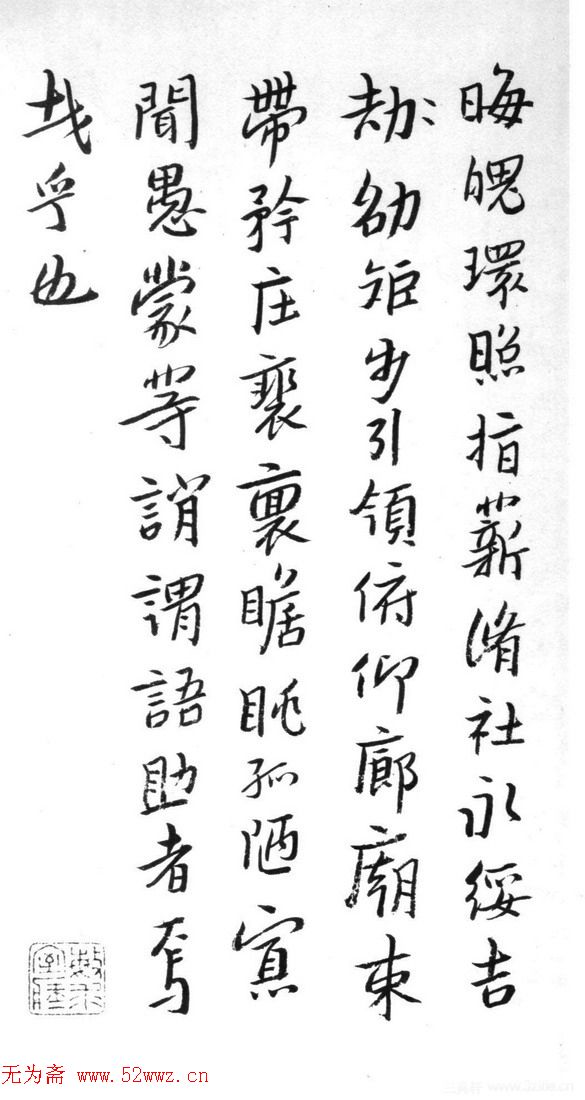 晦魄環照指薪脩社永綏吉
劫劭矩步引領俯仰廊廟束
帶矜庄裵褱瞻眺孤陋寡
聞愚蒙等誚謂語助者焉
哉乎也
无为斋 www.52wwz.cn